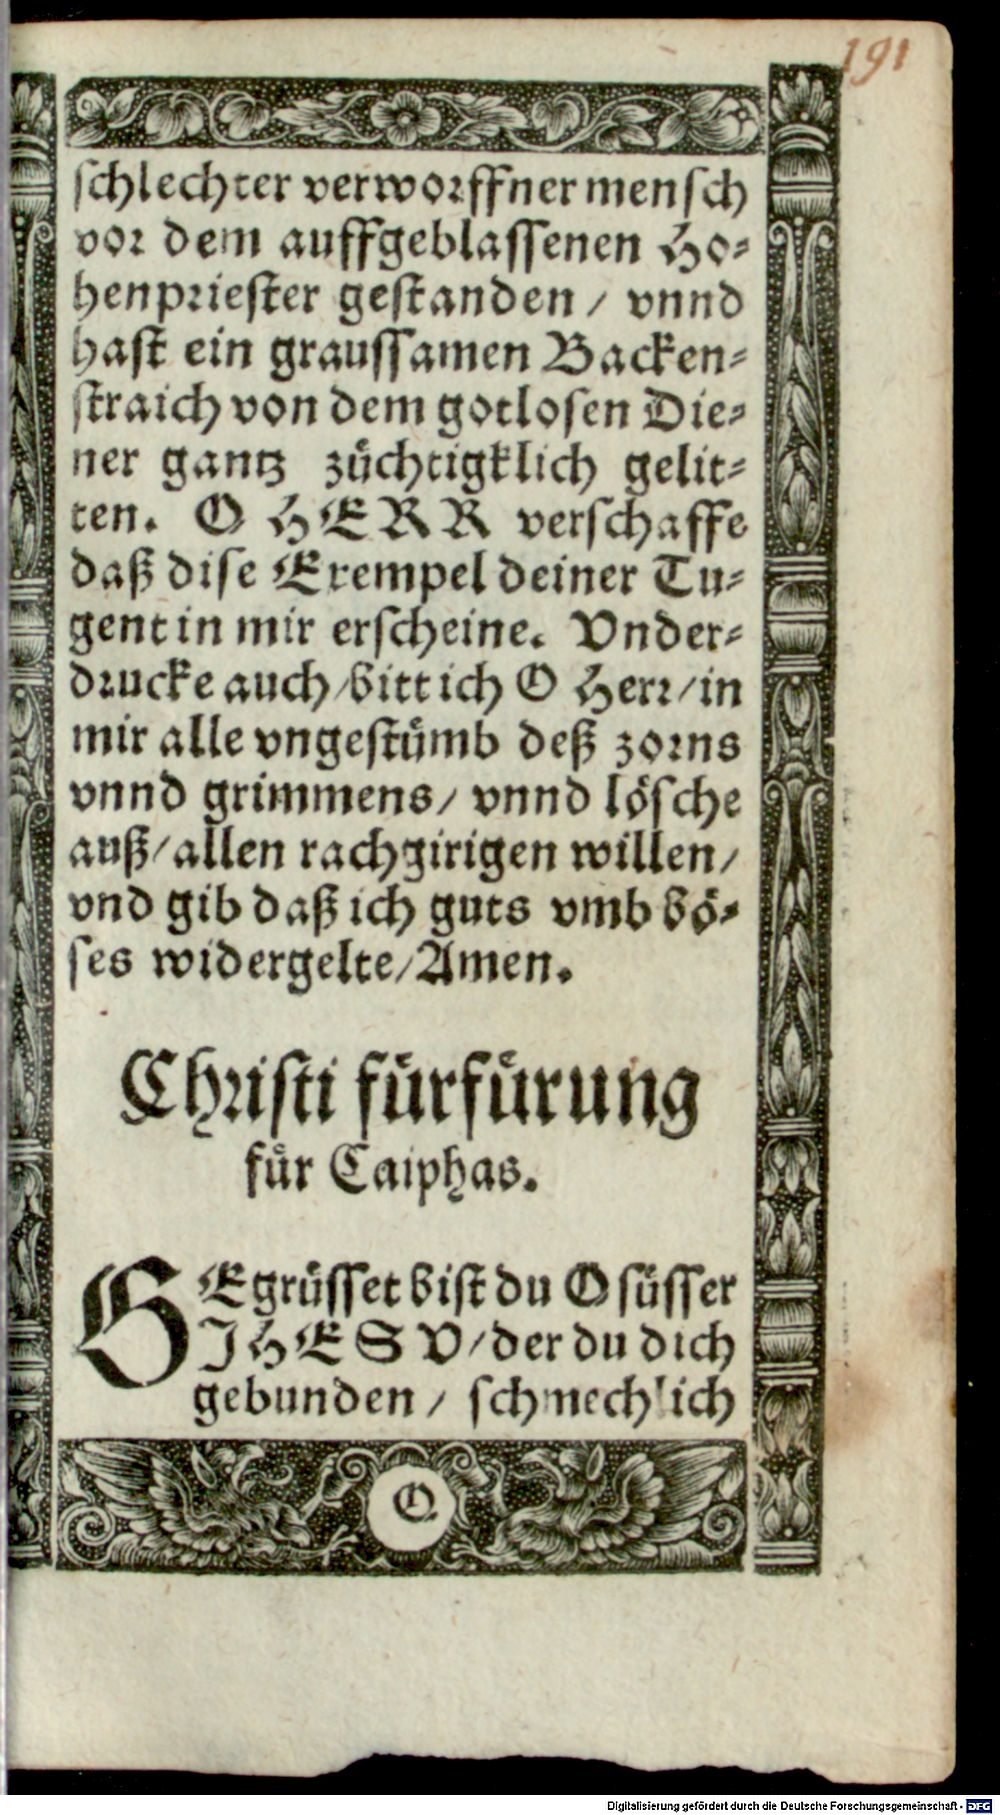 191
schlechter verworffner mensch
vor dem auffgeblassenen Ho-
henpriester gestanden / vnnd
hast ein graussamen Backen-
straich von dem gotlosen Die-
ner gantz züchtigklich gelit-
ten. O HERR verschaffe
daß dise Exempel deiner Tu-
gent in mir erscheine. Vnder-
drucke auch / bitt ich O Herr / in
mir alle vngestümb deß zorns
vnnd grimmens / vnnd lösche
auß / allen rachgirigen willen /
vnd gib daß ich guts vmb bö-
ses widergelte / Amen.
Christi fürfürung
für Caiphas.
GEgrüsset bist du O süsser
JHESV / der du dich
gebunden / schmechlich
Q
Digitalisierung gefördert durch die Deutsche Forschungsgemeinschaft - DFG